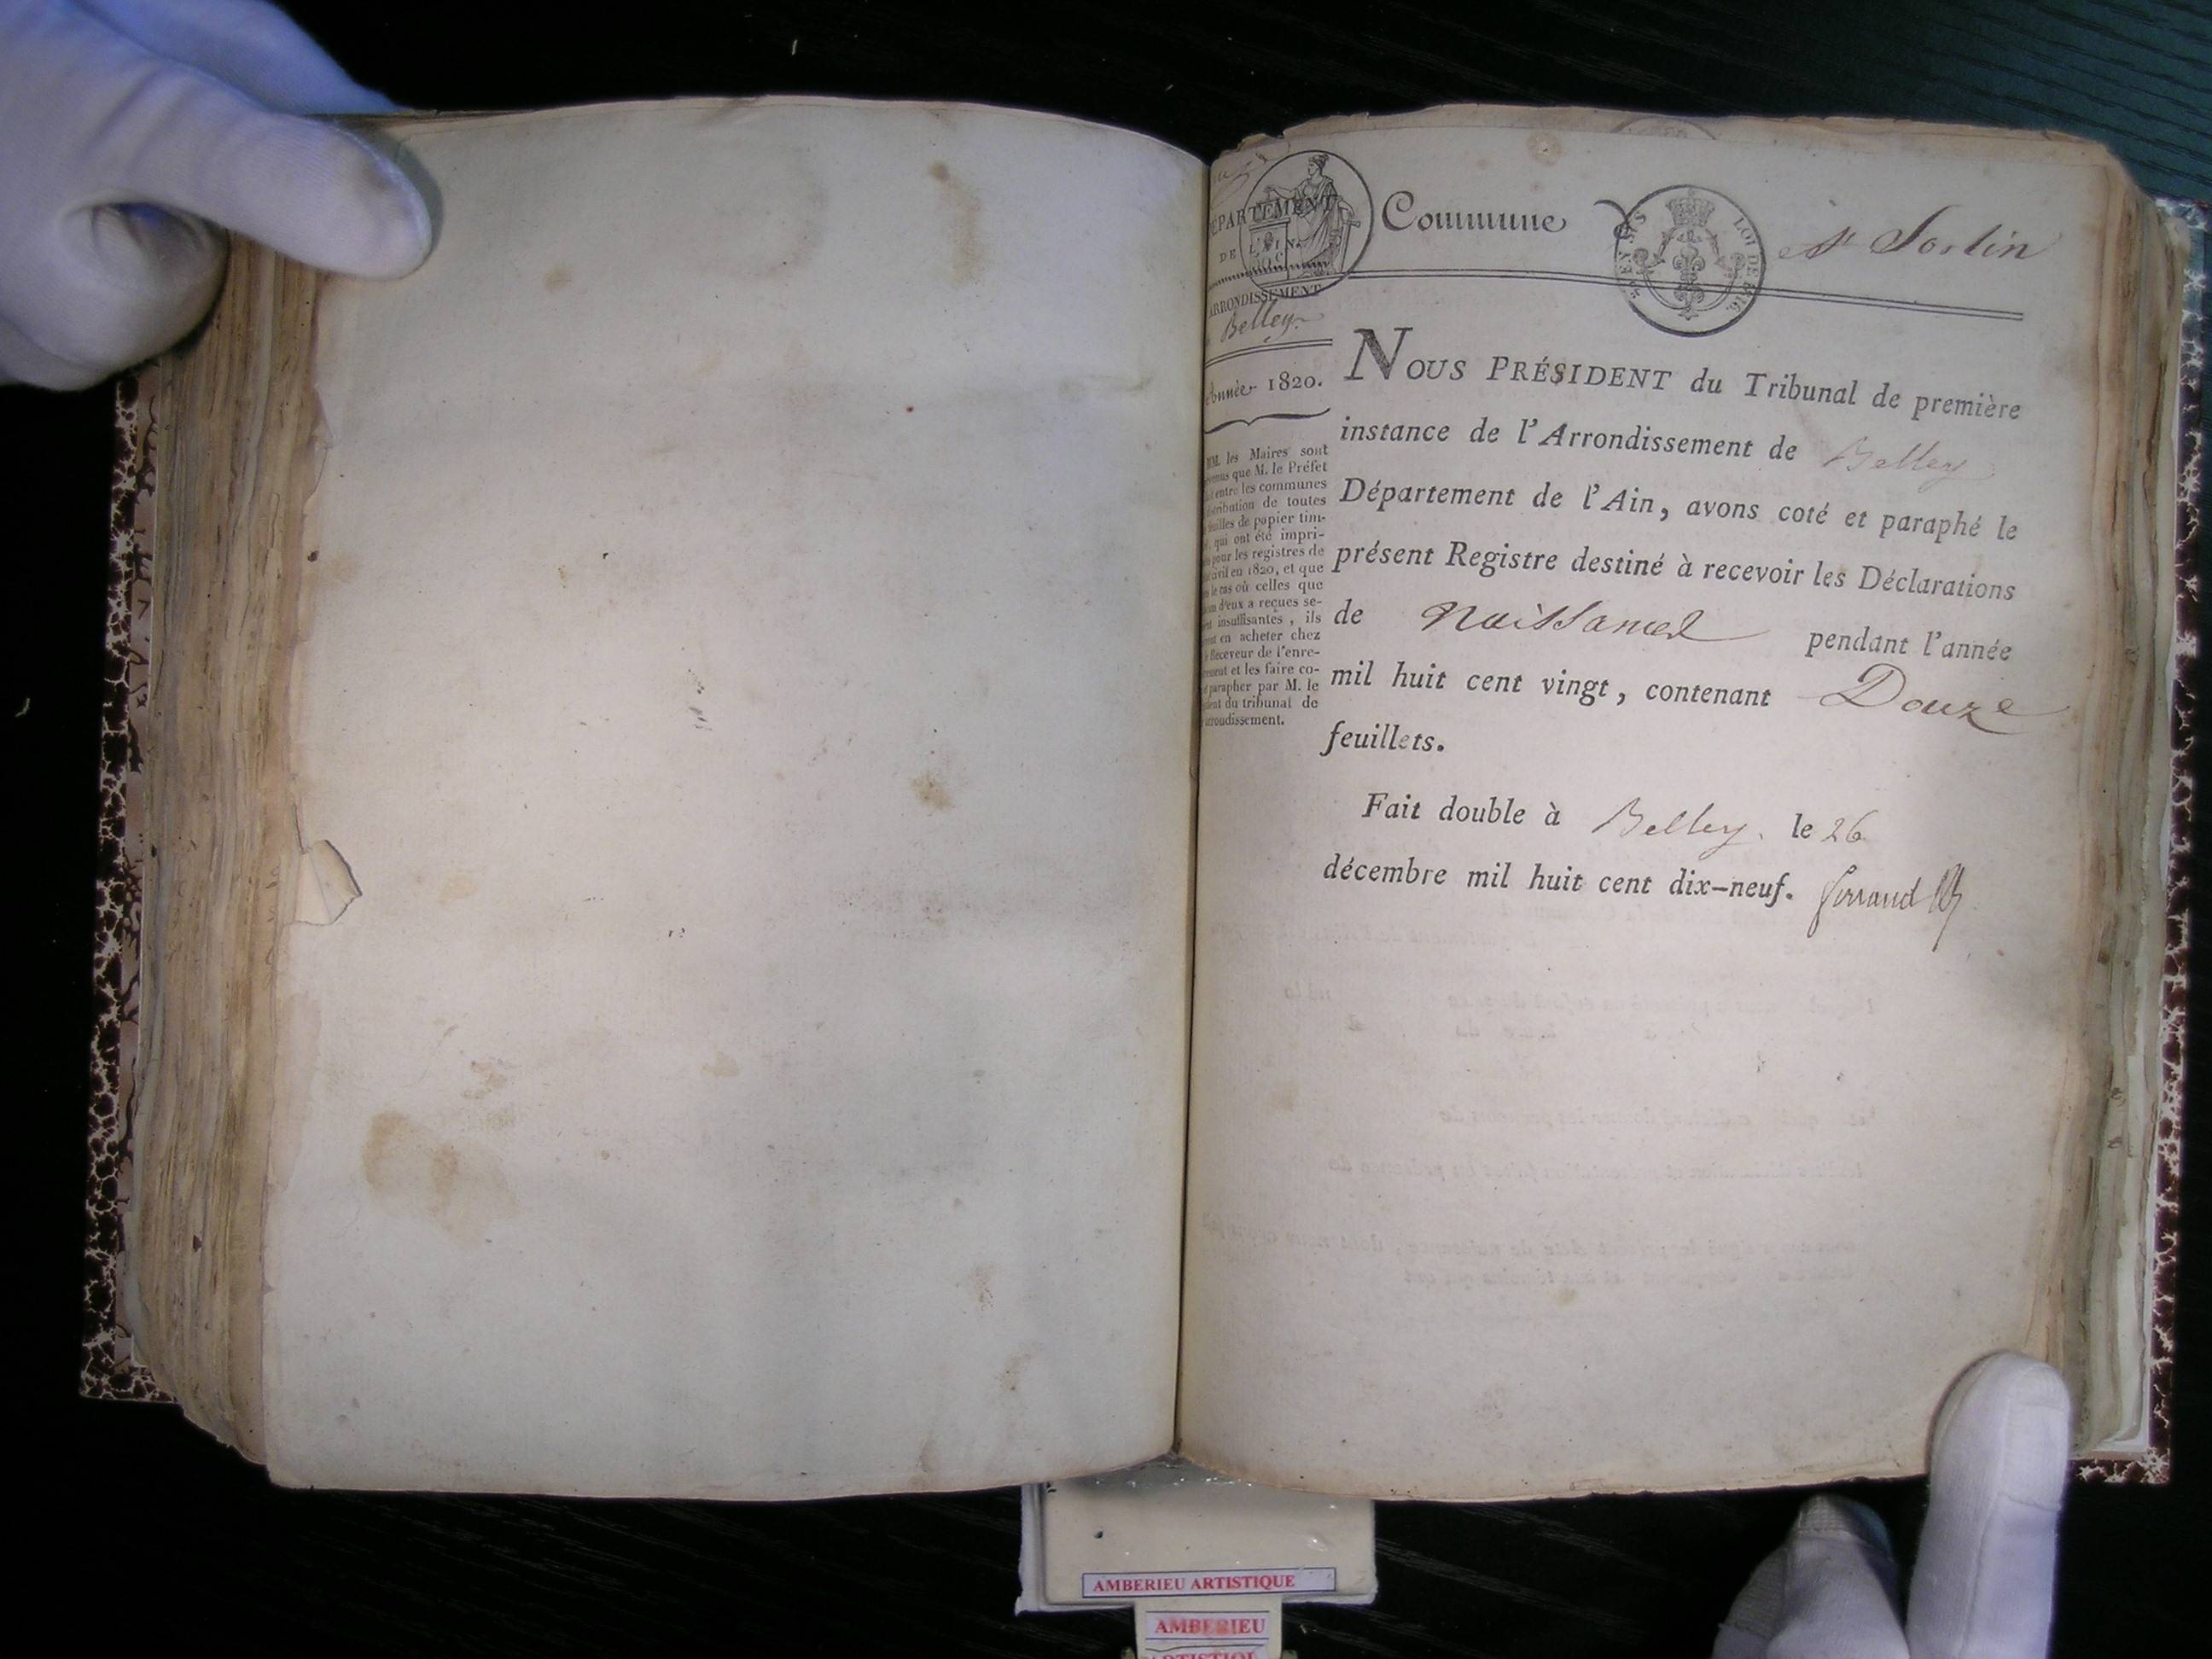 DÉPARTEMENT
DE L'AIN.
ARRONDISSEMENT
Belley
Année 1820.
MM. les Maires sont
que M. le Préfet
entre les communes
distribution de toutes
feuilles de papier tim-
qui ont été impri-
pour les registres de
civil en 1820, et que
le cas où celles que
d'eux a reçues se-
insuffisantes, ils
en acheter chez
Receveur de l'enre-
et les faire co-
parapher par M. le
du tribunal de
arrondissement.
Commune
LOI DE 1816.
St Sorlin
NOUS PRÉSIDENT du Tribunal de première
instance de l'Arrondissement de Belley
Département de l'Ain, avons coté et paraphé le
présent Registre destiné à recevoir les Déclarations
de naissance pendant l'année
mil huit cent vingt, contenant Douze
feuillets.
Fait double à Belley. le 26
décembre mil huit cent dix-neuf.
AMBERIEU ARTISTIQUE
AMBERIEU
ARTISTIQUE